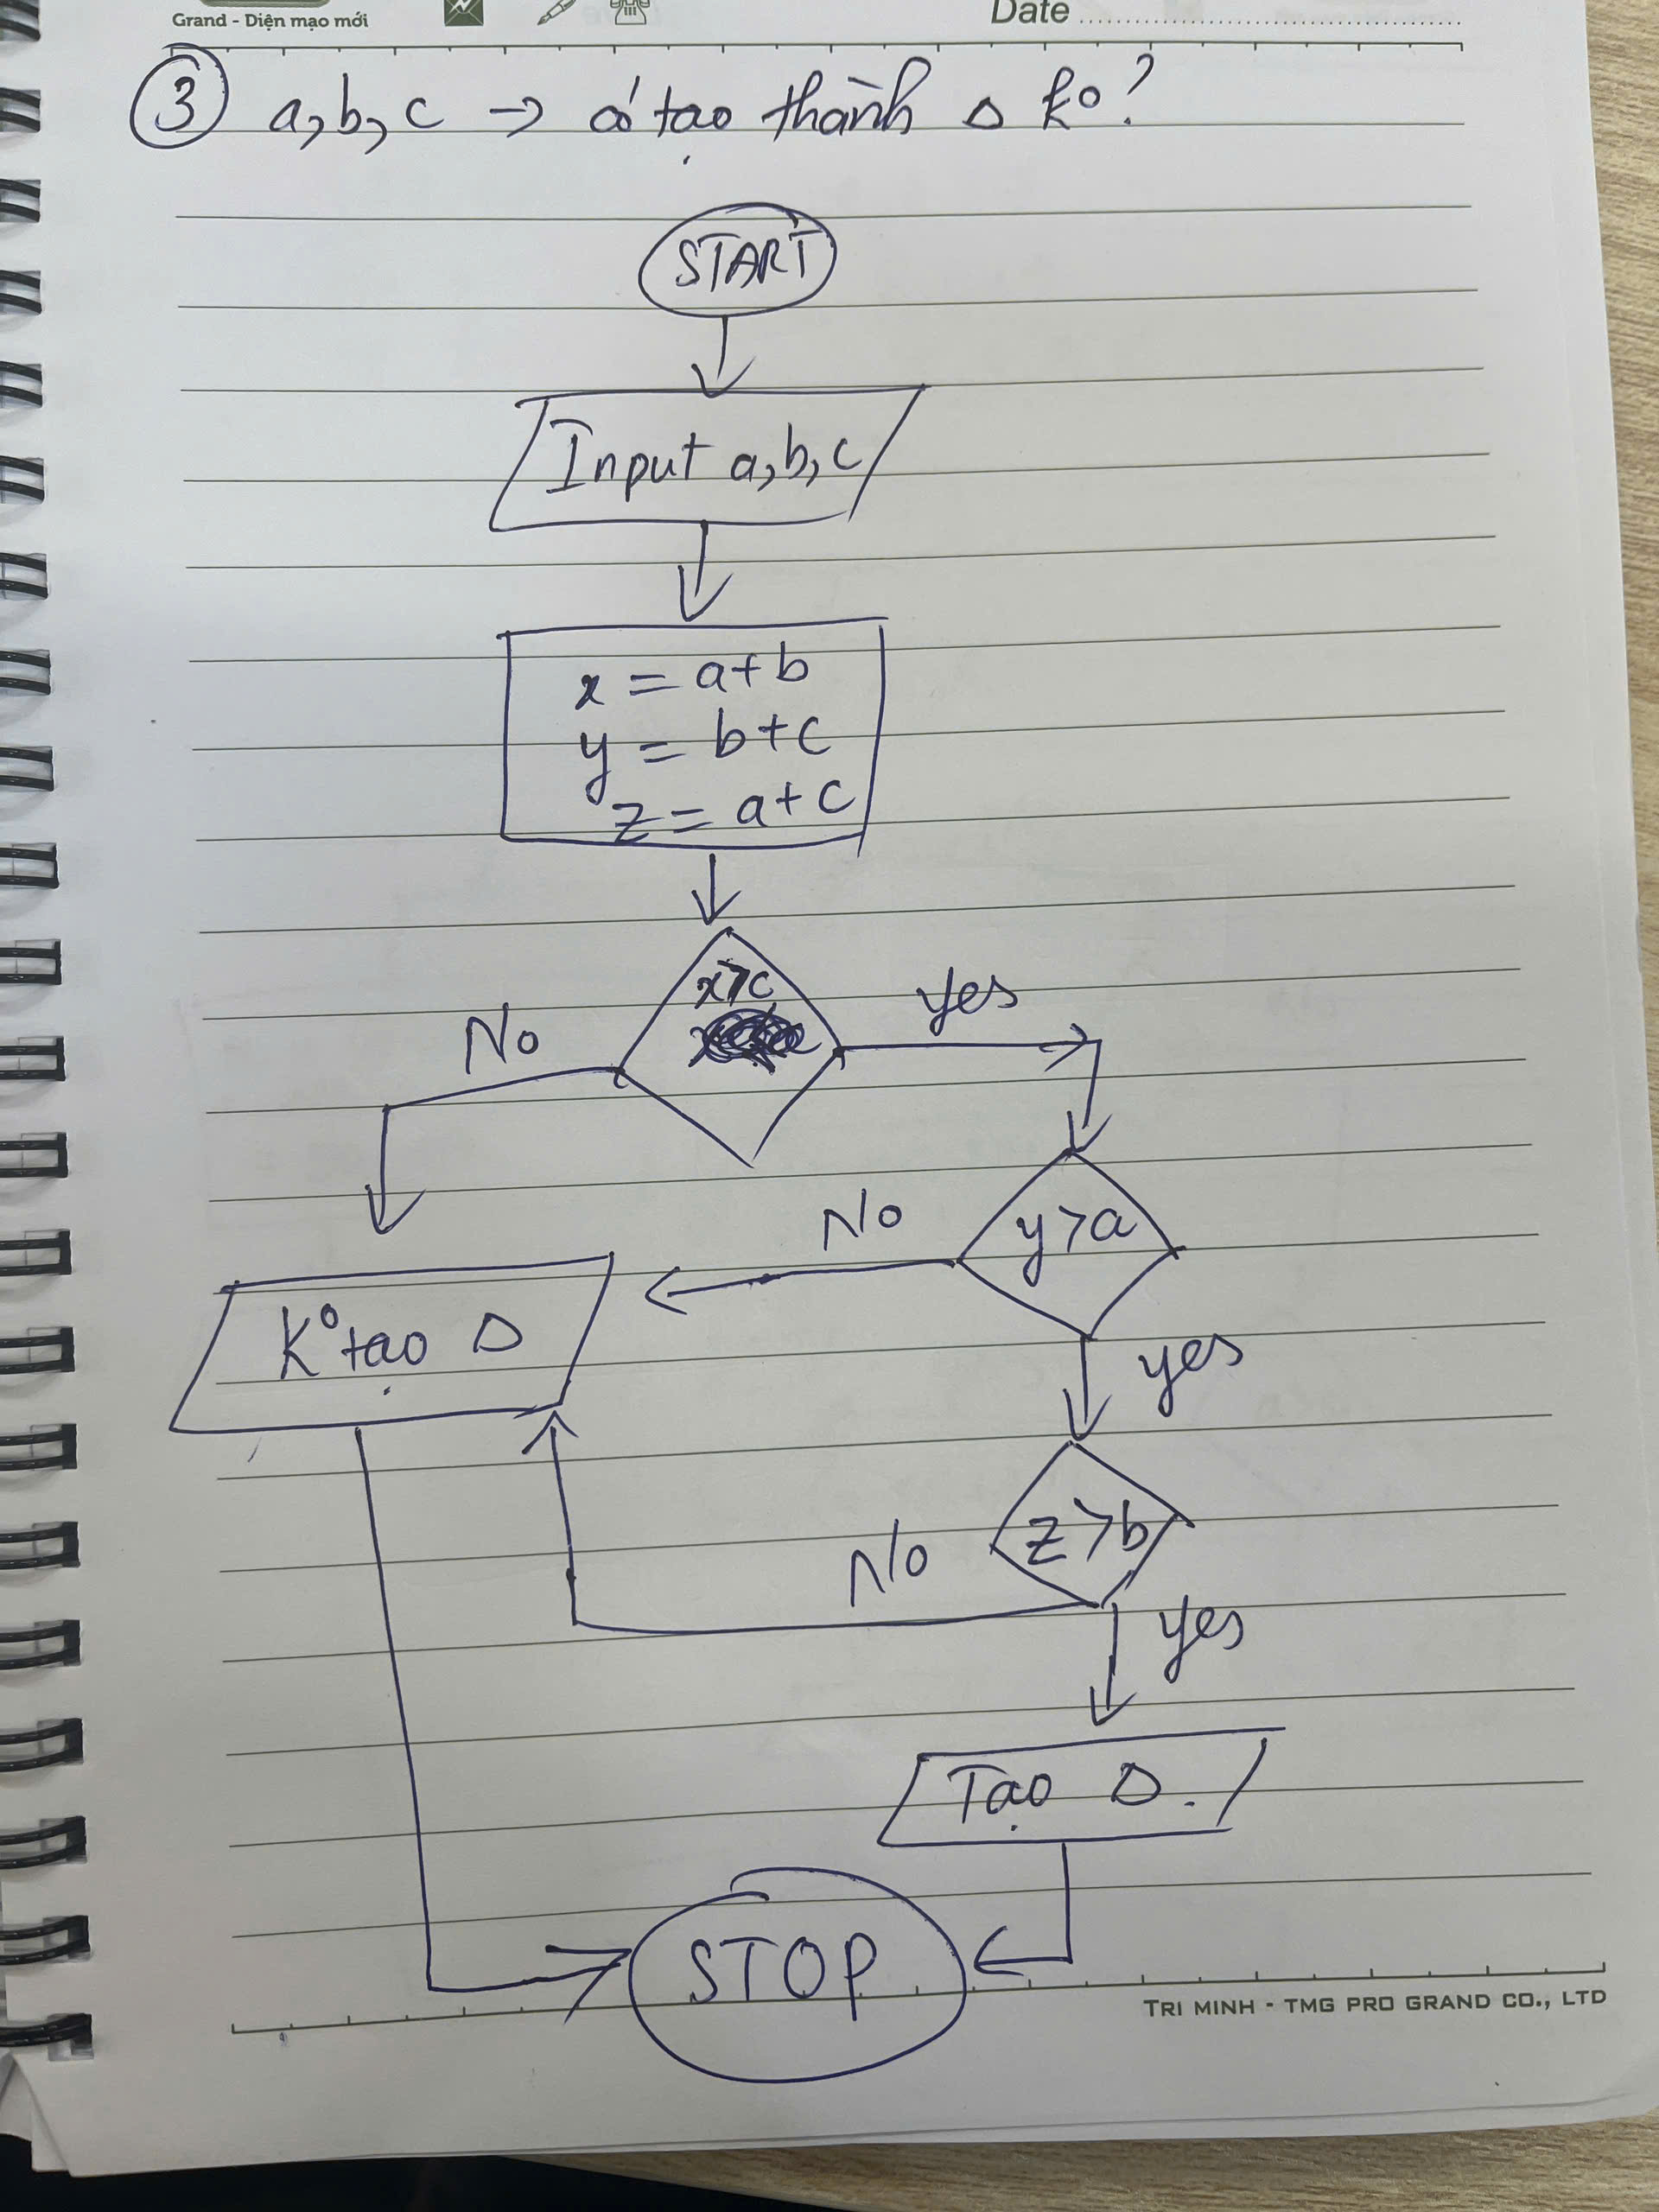 Grand - Diện mạo mới
Date
③ a, b, c → có tạo thành △ ko?
START
Input a, b, c
x = a+b
y = b+c
z = a+c
x>c
No
yes
y>a
No
yes
K° tạo △
z>b
No
yes
Tạo △.
STOP
TRI MINH - TMG PRO GRAND CO., LTD